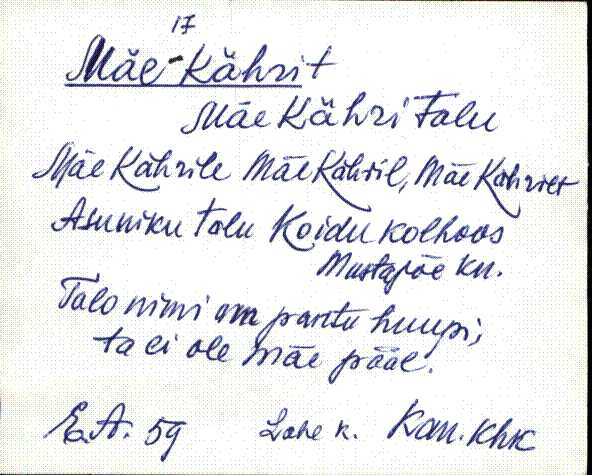 17
Mäe-Kährit
Mäe Kähri talu
Mäe Kährile Mäe Kähril, Mäe Kährist
Asuniku talu Koidu kolhoos
Mustajõe kn.
Talo nimi om pantu huupi,
ta ei ole mäe pääl.
E.A. 59 Lahe k. Kan. khk